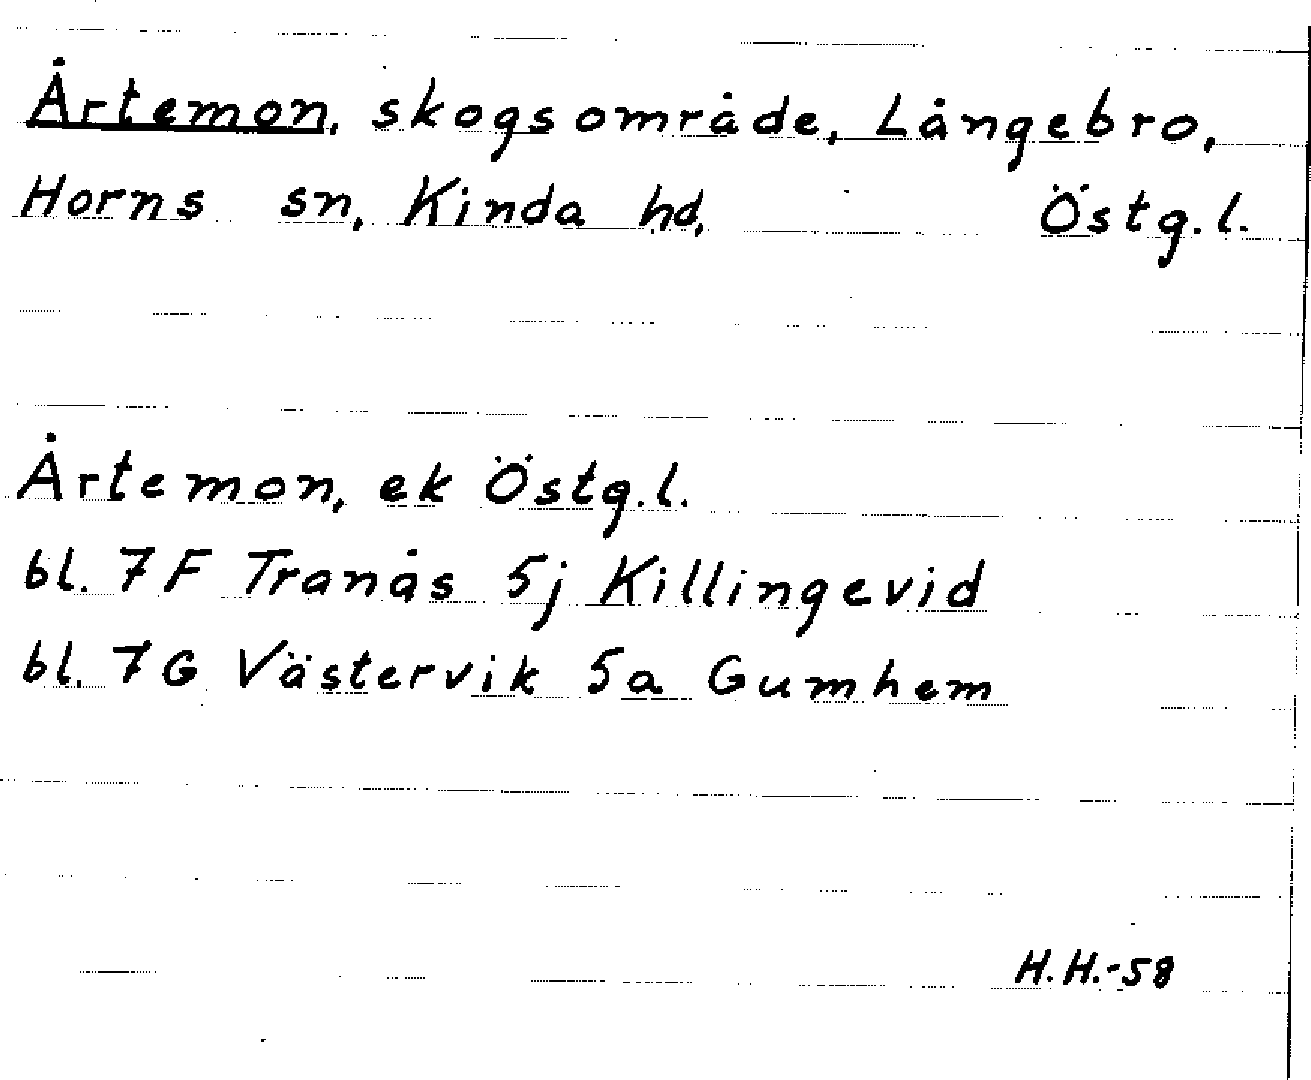 Årtemon, skogsområde, Långebro,
Horns sn, Kinda hd, Östg.l.
Årtemon, ek Östg.l.
bl. 7F Tranås 5j Killingevid
bl. 7G Västervik 5a Gumhem
H.H.-58